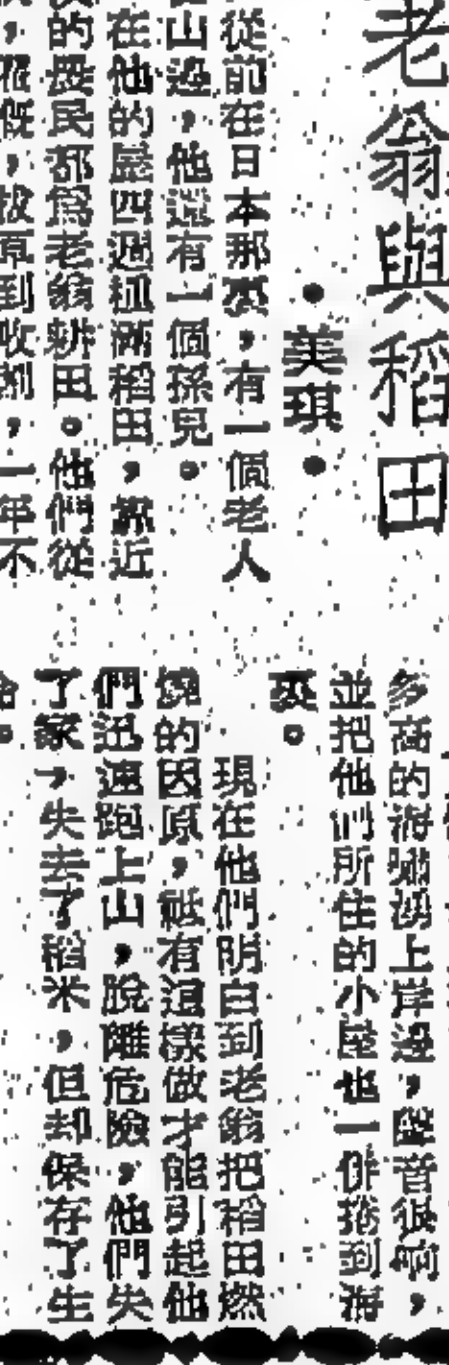 老翁與稻田
•美琪•
從前在日本那裏，有一個老人
山邊，他還有一個孫兒。
在他的屋四週種滿稻田，鄰近
的農民都爲老翁耕田。他們從
到收割，一年不
多高的海嘯湧上岸邊，聲音很响，
並把他們所住的小屋也一併捲到海
裏。
現在他們明白到老翁把稻田燃
燒的因原，祗有這樣做才能引起他
們迅速跑上山，脫離危險，他們失
了家，失去了稻米，但却保存了生